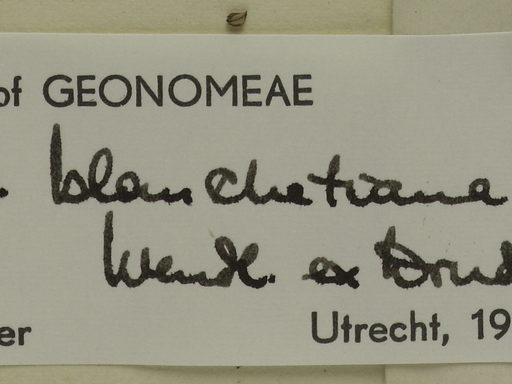 of GEONOMEAE
blanchetiana
Wendl. ex Drud
er Utrecht, 19